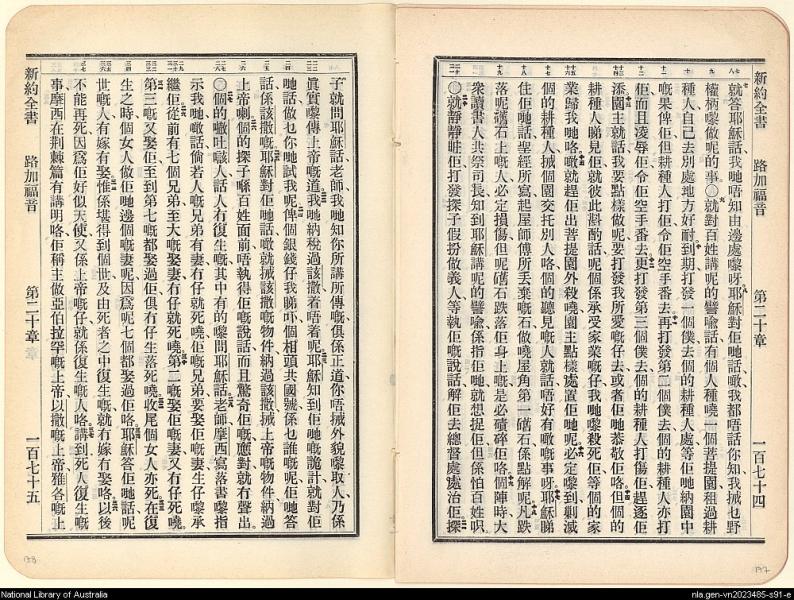 新約全書 路加福音 第二十章 一百七十四
就答耶穌話我哋唔知由邊處嚟呀耶穌對佢哋話噉我都唔話你知我搣乜野
權柄嚟做呢的事〇就對百姓講呢的譬喻話有個人種嘵一個菩提園租過耕
種人自己去別處地方好耐到期打發一個僕去個的耕種人處等佢哋納園中
嘅果俾佢但耕種人打佢令佢空手番去再打發第二個僕去個的耕種人亦打
佢而且凌辱佢令佢空手番去更打發第三個僕去個的耕種人打傷佢趕逐佢
添園主就話我要點樣做呢要打發我所愛嘅仔去或者佢哋恭敬佢咯但個的
耕種人睇見佢就彼此斟酌話呢個係承受家業嘅仔我哋嚟殺死佢等個的家
業歸我哋咯噉就趕佢出菩提園外殺嘵園主點樣處置佢哋呢必定嚟到剿滅
個的耕種人搣個園交托別人咯個的聽見嘅人就話唔好有噉嘅事呀耶穌睇
住佢哋話聖經所寫起屋師傅所丟棄嘅石做嘵屋角第一磡石係點解呢凡跌
落呢磡石上嘅人必定損傷但呢磡石跌落佢身上嘅是必磧碎佢咯個陣時大
衆讀書人共祭司長知到耶穌講呢的譬喻係指佢哋就想捉佢但係怕百姓呮
〇就靜靜佢打發探子假扮做義人等執佢嘅說話解佢去總督處處治佢探
子就問耶穌話老師我哋知你所講所傳嘅俱係正道你唔搣外貌嚟取人乃係
眞實嚟傳上帝嘅道我哋納稅過該撒着唔着呢耶穌知到佢哋嘅詭計就對佢
哋話做乜你哋試我呢俾個銀錢仔我睇吓個相頭共國號係乜誰嘅呢佢哋答
話係該撒嘅耶穌對佢哋話噉就搣該撒嘅物件納過該撒搣上帝嘅物件納過
上帝喇個的探子喺百姓面前唔執得佢嘅說話而且驚奇佢嘅應對就冇聲出
〇個的嗷吐㗎人話人冇復生嘅其中有的嚟問耶穌話老師摩西寫落書嚟指
示我哋噉話倘若人嘅兄弟有妻冇仔就死嘵佢嘅兄弟要娶佢嘅妻生仔嚟承
繼佢從前有七個兄弟至大嘅娶妻冇仔就死嘵第二嘅娶佢嘅妻又冇仔死嘵
第三嘅又娶佢至到第七嘅都娶過佢俱冇仔生落死嘵收尾個女人亦死在復
生之時個女人做佢哋邊個嘅妻呢因爲呢七個都娶過佢咯耶穌答佢哋話呢
世嘅人有嫁有娶惟係堪得到個世及由死者之中復生嘅就冇嫁冇娶咯以後
不能再死因爲佢好似天使又係上帝嘅仔就係復生嘅人咯講到死人復生嘅
事摩西在荆棘篇有講明咯佢稱主做亞伯拉罕嘅上帝以撒嘅上帝雅各嘅上
新約全書 路加福音 第二十章 一百七十五
National Library of Australia
nla.gen-vn2023485-s91-e